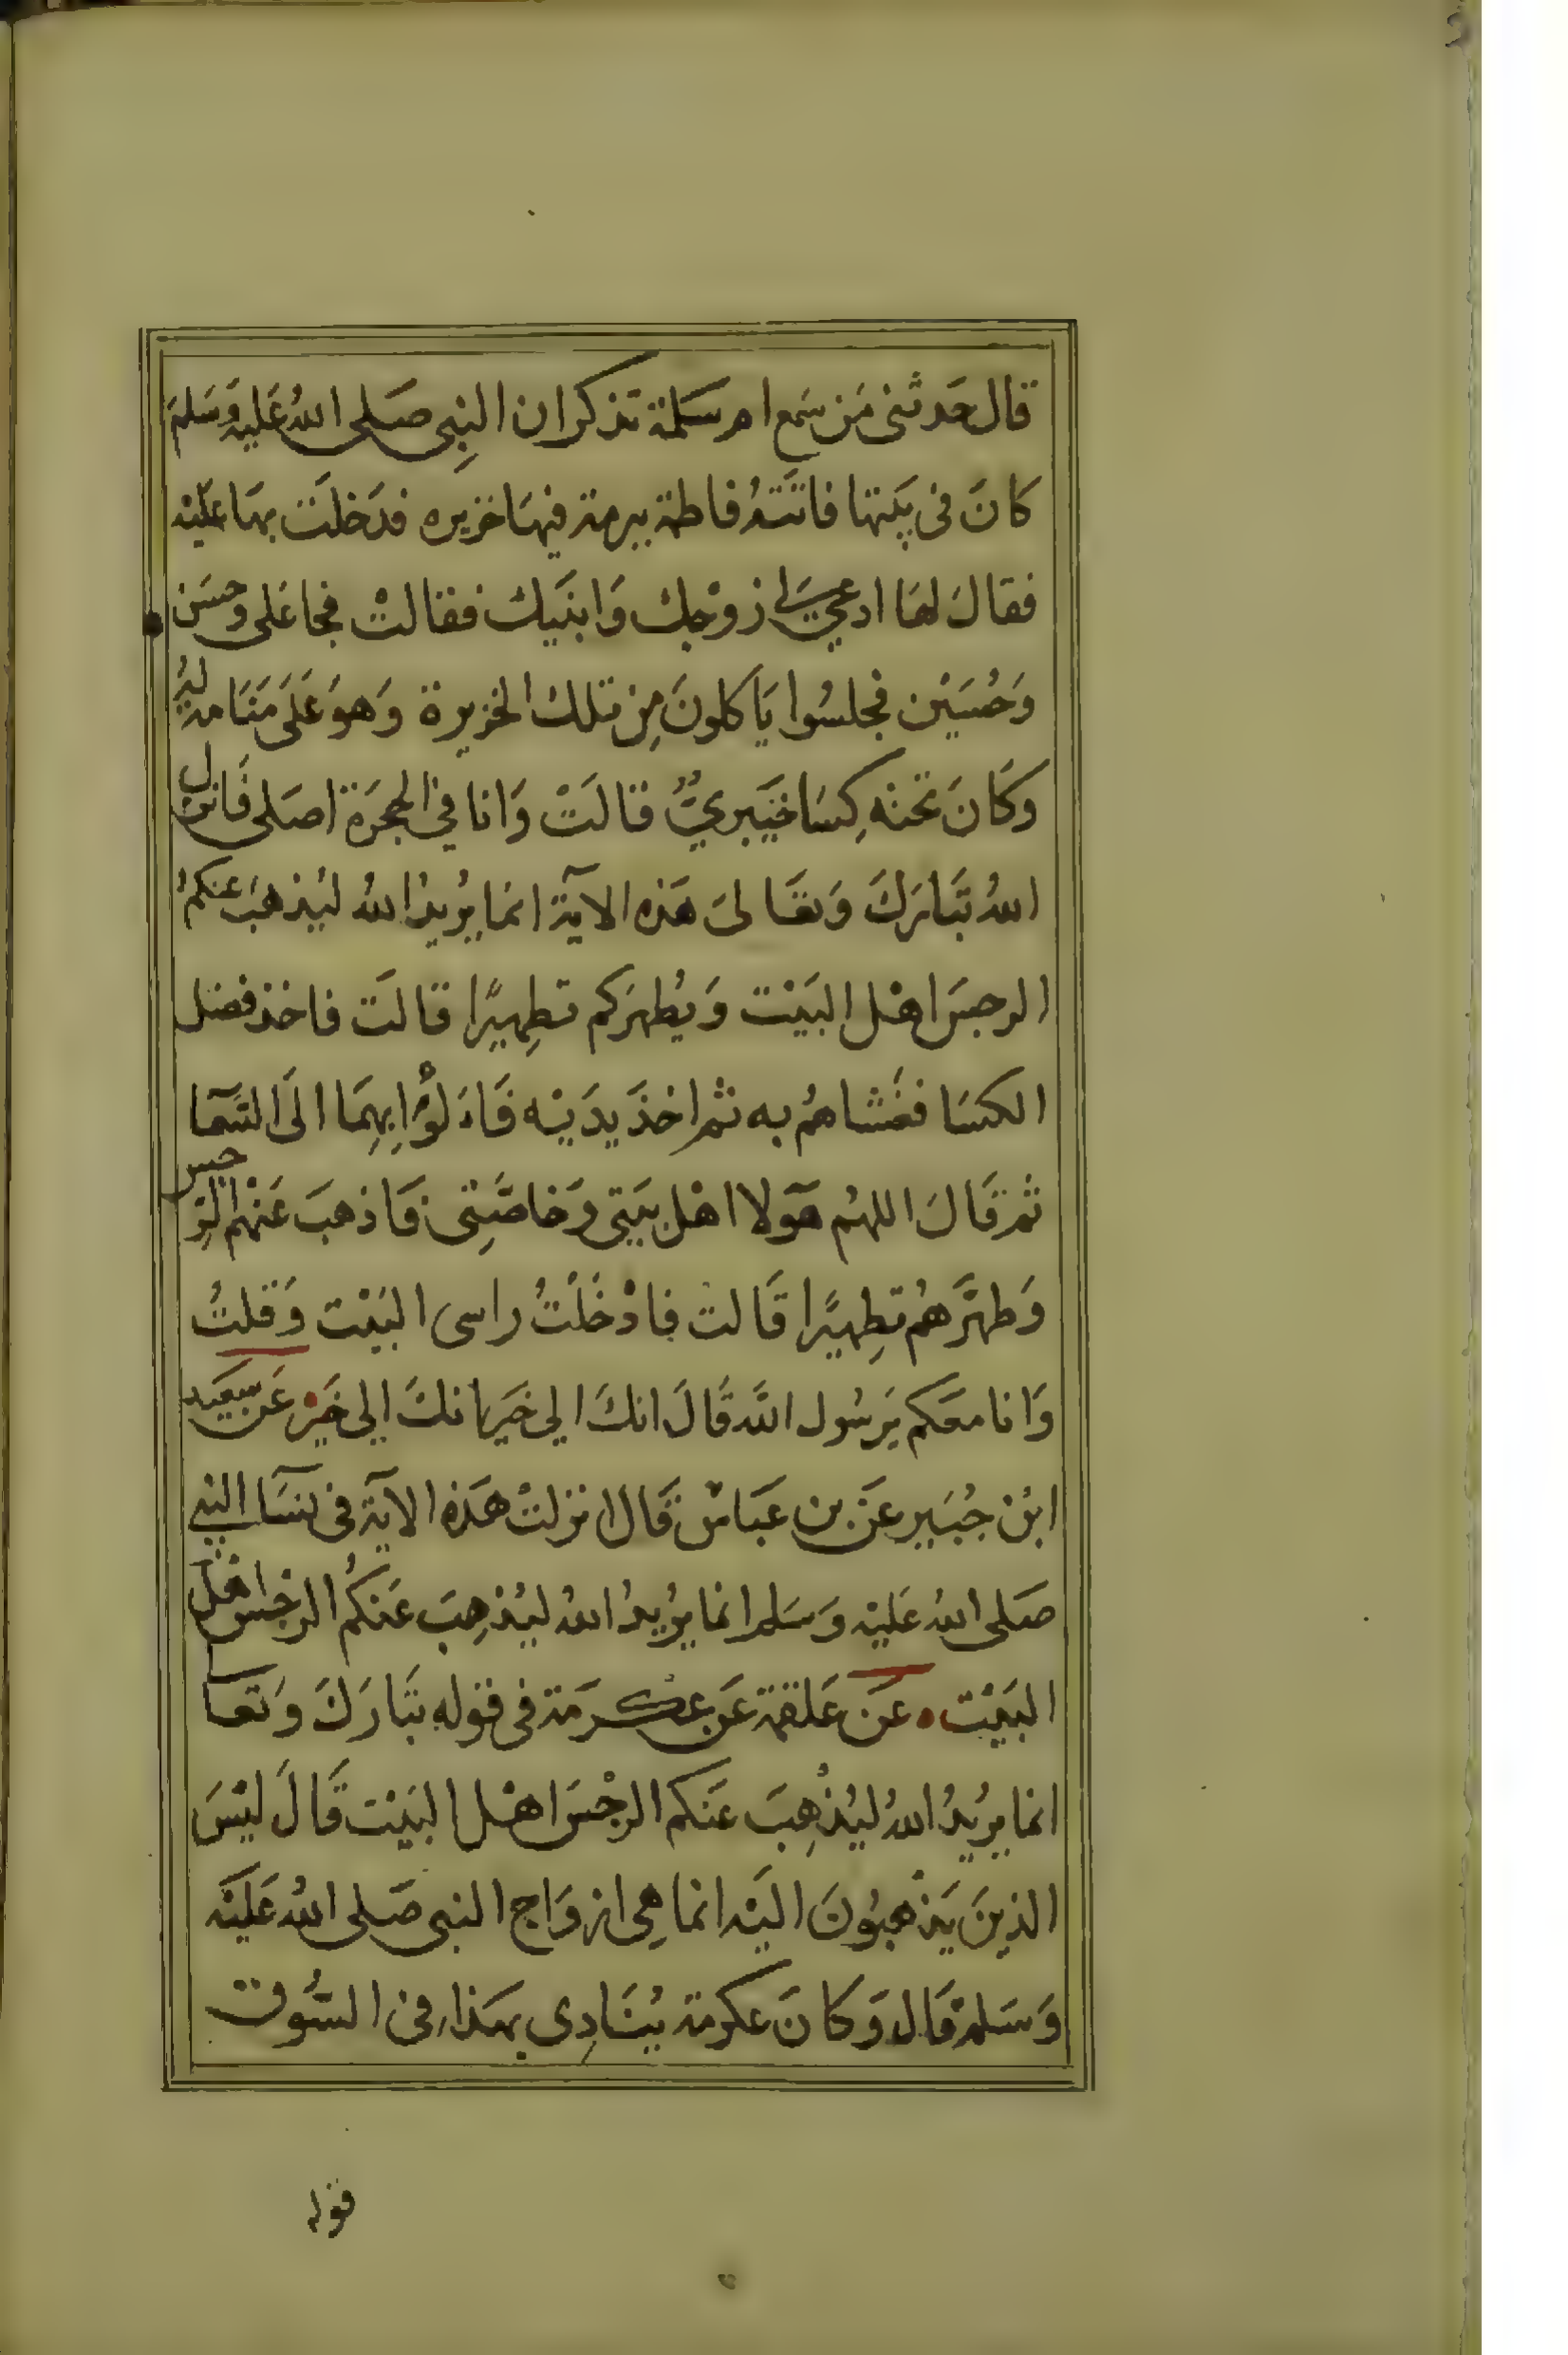 قال حَدثنى مَن سَمع ام سَلمة تذكر ان النبِى صَلى اللهُ عَليهِ وَسَلمَ
كانَ فى بَيتها فاتَتهُ فاطمة ببرمة فيهَا خزيره فدَخلَت بهَا عَليْه
فقالَ لهَا ادعي لى زوْجك وَابنَيك فقالتْ فجا عَلى وحسَن
وَحُسَيْن فجلسُوا يَاكلونَ مِن تلك الخزيرة وَهوَ عَلَى مَنَامة لهُ
وكَانَ تحتهِ كِسَا خيَبريٌّ قالَتْ وَانا في الحجرَة اصَلى فَانزل
اللهُ تَبَارَكَ وَتعَالىَ هَذه الآية انما يُريدُ اللهُ ليُذهبَ عنكمُ
الرجسَ اهْل البَيْت وَيُطهرَكم تطِهيرًا قالَت فاخذ فضل
الكسَا فغَشاهمُ به ثم اخذَ يدَيْه فَاَلوَا بِهِمَا الَى السَّمآ
ثم قَالَ اللهُم هَولا اهْل بيَتى وَخاصَّتِى فَاذهبَ عَنْهم الرِّجس
وَطهّرَهُم تطِهيرًا قَالت فادْخَلْتُ راسى البَيْت وَقلتُ
وَانا معَكم يَرسُول اللَّه قَالَ انكَ الى خَير انكَ الى خَيْر عَن سَعيد
ابُن جُبَير عَن بن عَباسْ قَال انزلتْ هَذه الآية فى نسَآ النبى
صَلى اللهُ عَليْه وَسَلم انما يُريدُ اللهُ ليُذهِبَ عَنكُمُ الرجْسَ اهْل
البَيْت ه عَن عَلقمة عَن عكرمَة فى قوله تبَارَكَ وَتعَا
انما يُريْدُ اللهُ ليُذْهِبَ عَنكم الرجْسَ اهْل البَيْت قَالَ ليْسَ
الذِينَ يَذْهبُونَ اليَه انما هِى ازوَاج النبى صَلى اللهُ عَليَه
وَسَلمْ قَال وَكانَ عكرمة يُنَادِى بهَذا فى السُّوق
قوله